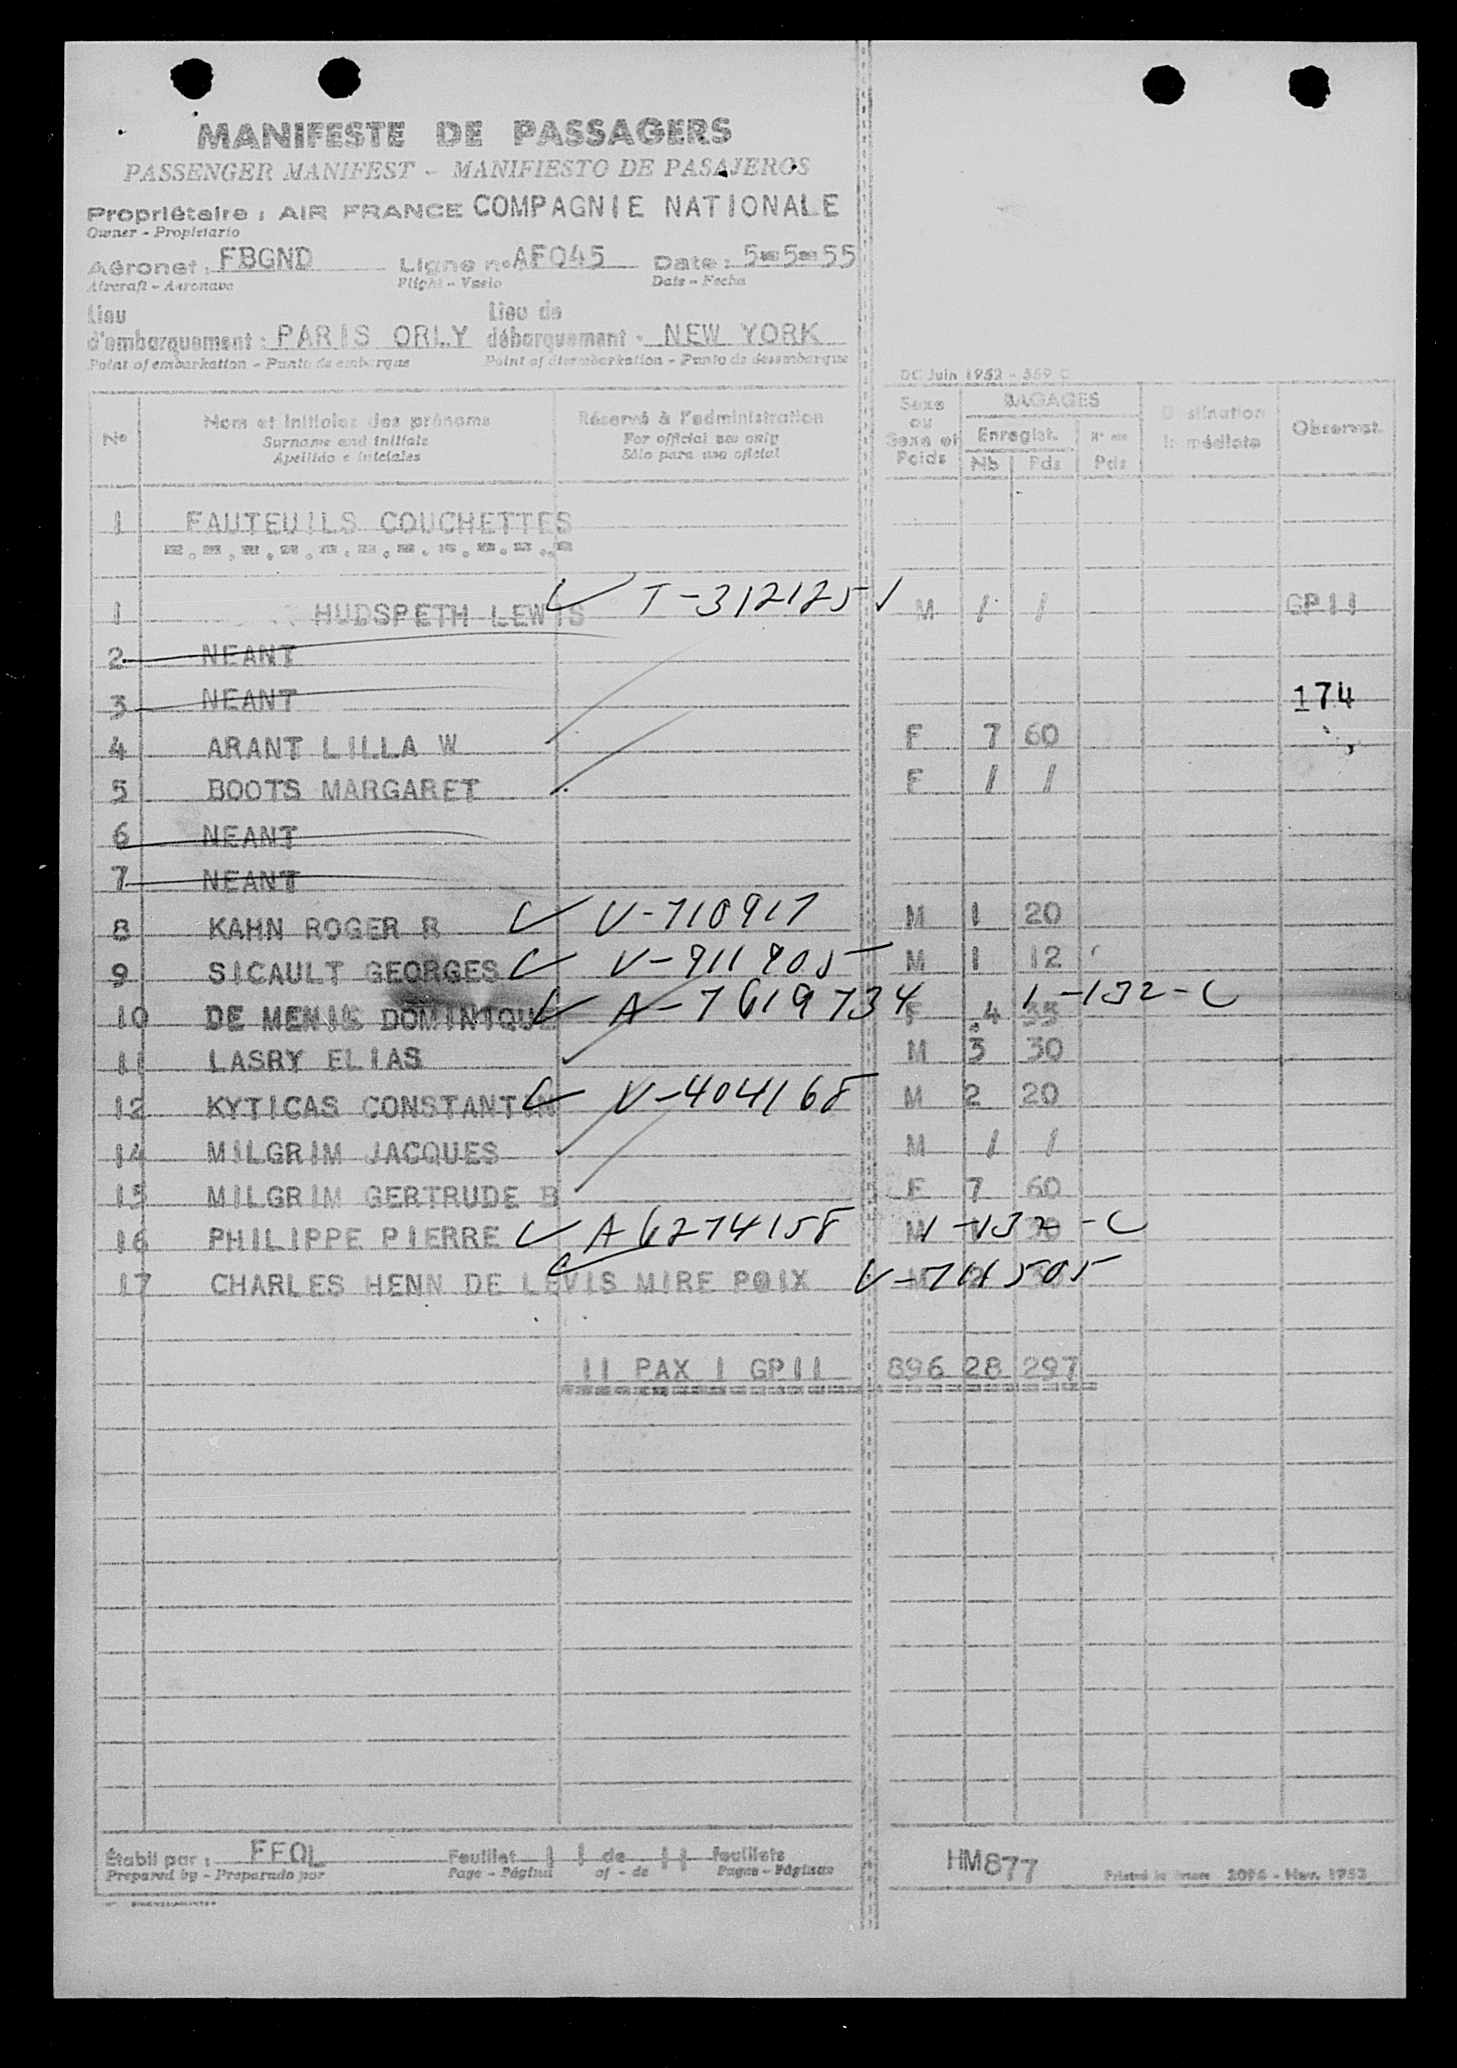 MANIFESTE DE PASSAGERS
PASSENGER MANIFEST - MANIFIESTO DE PASAJEROS
Propriétaire : AIR FRANCE COMPAGNIE NATIONALE
Owner - Propietario
Aéronef : FBGND Ligne n° AF045 Date : 5-5-55
Aircraft - Aeronave Flight - Vuelo Date - Fecha
Lieu d'embarquement : PARIS ORLY Lieu de débarquement - NEW YORK
Point of embarkation - Punto de embarque Point of disembarkation - Punto de desembarque
DC Juin 1952 - 359 C
N° Nom et initiales des prénoms Réservé à l'administration Sexe ou Sexe et Poids BAGAGES Destination Immédiate Observat.
Surname and initials For official use only Enregist. N° Pds
Apellido e iniciales Sólo para uso oficial Nb Pds
1 FAUTEUILS COUCHETTES
1 HUDSPETH LEWIS T-312125 M / / GP11
2 NEANT
3 NEANT 174
4 ARANT LILLA W F 7 60
5 BOOTS MARGARET F / /
6 NEANT
7 NEANT
8 KAHN ROGER R V-710917 M 1 20
9 SICAULT GEORGES V-911905 M 1 12
10 DE MENIL DOMINIQUE A-7619734 F 4 35 1-132-C
11 LASRY ELIAS M 3 30
12 KYTICAS CONSTANTIN V-404168 M 2 20
14 MILGRIM JACQUES M / /
15 MILGRIM GERTRUDE B F 7 60
16 PHILIPPE PIERRE A6274158 M 30 1-132-C
17 CHARLES HENN DE LEVIS MIRE POIX M 2
11 PAX 1 GP11 896 28 297
Établi par : FFOL Feuillet 1 1 de 11 feuillets HM877 2096 - Nov. 1953
Prepared by - Preparado por Page - Página of - de Pages - Páginas